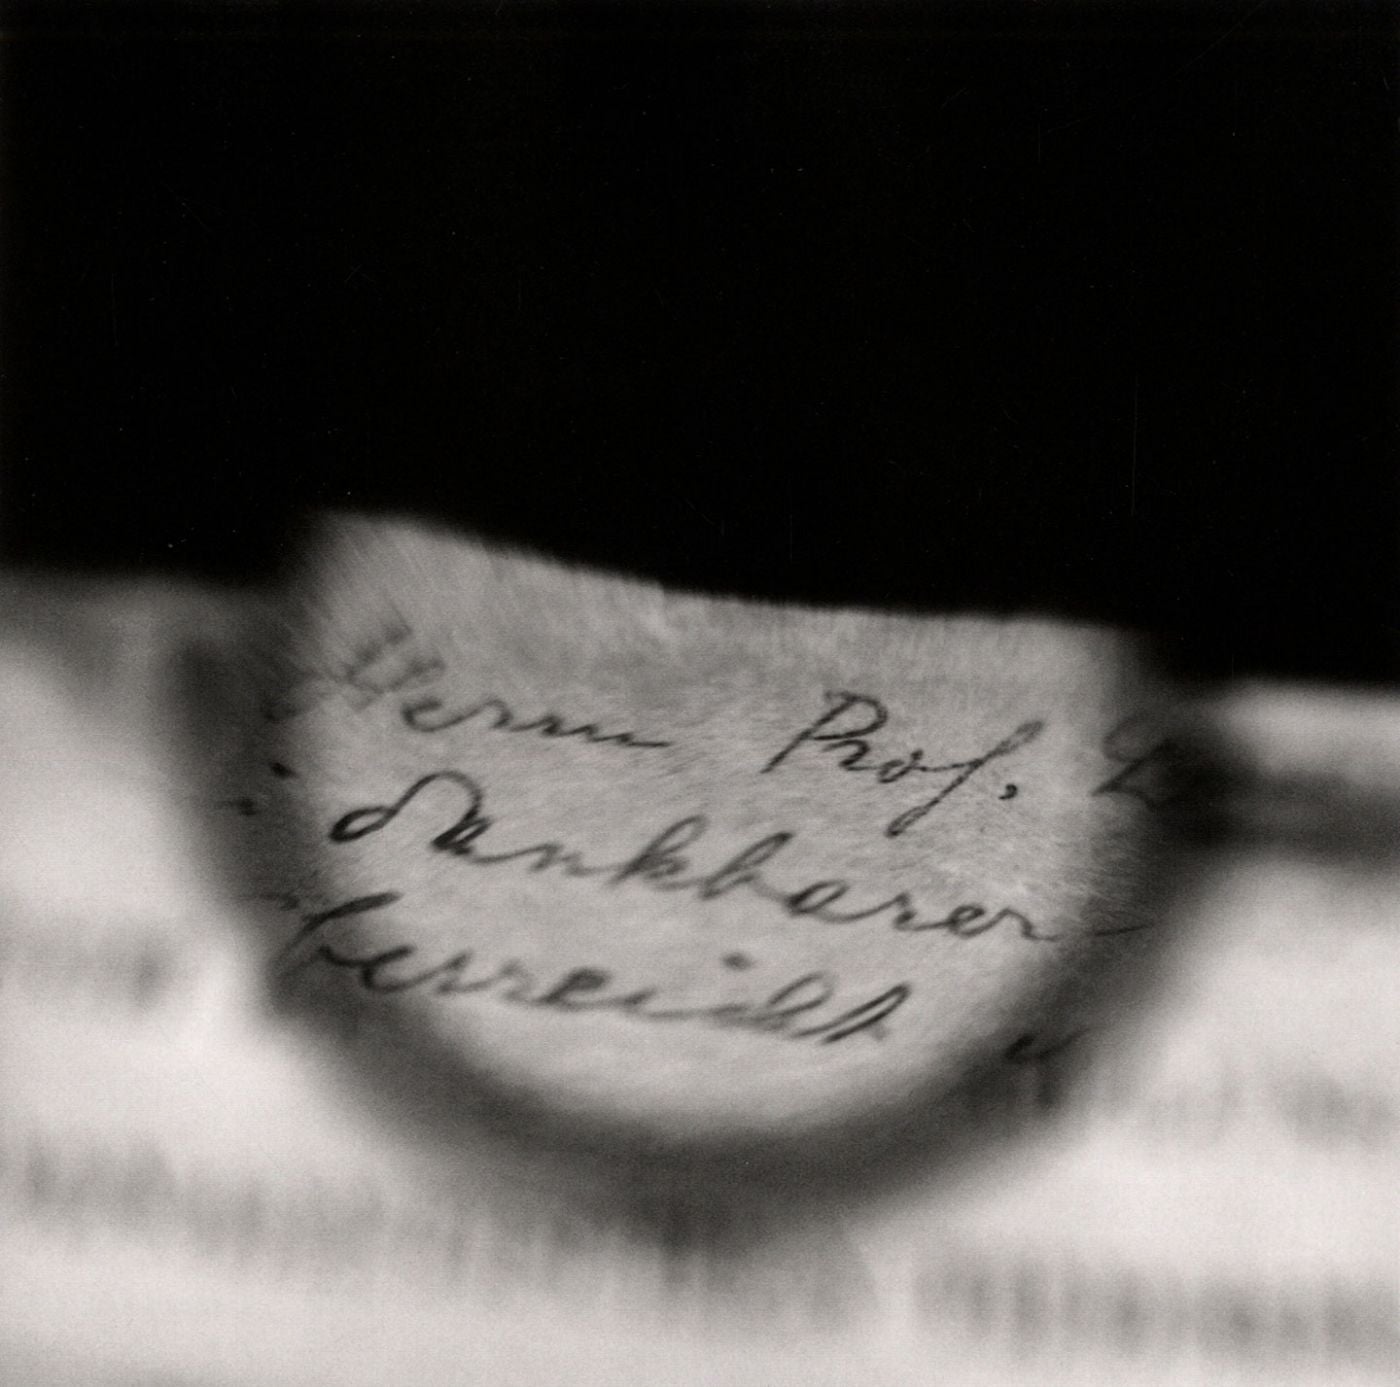 Herrn Prof.
dankbarer
berreicht